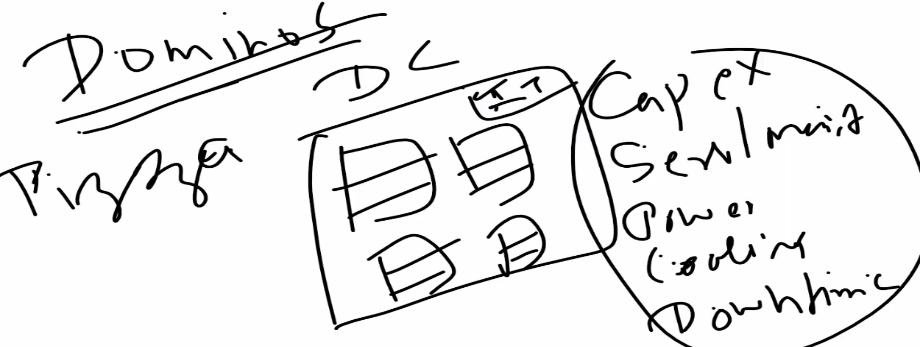 Dominos
Pizza
DC
IT
Capex
Serv/maint
Power
Cooling
Downtime